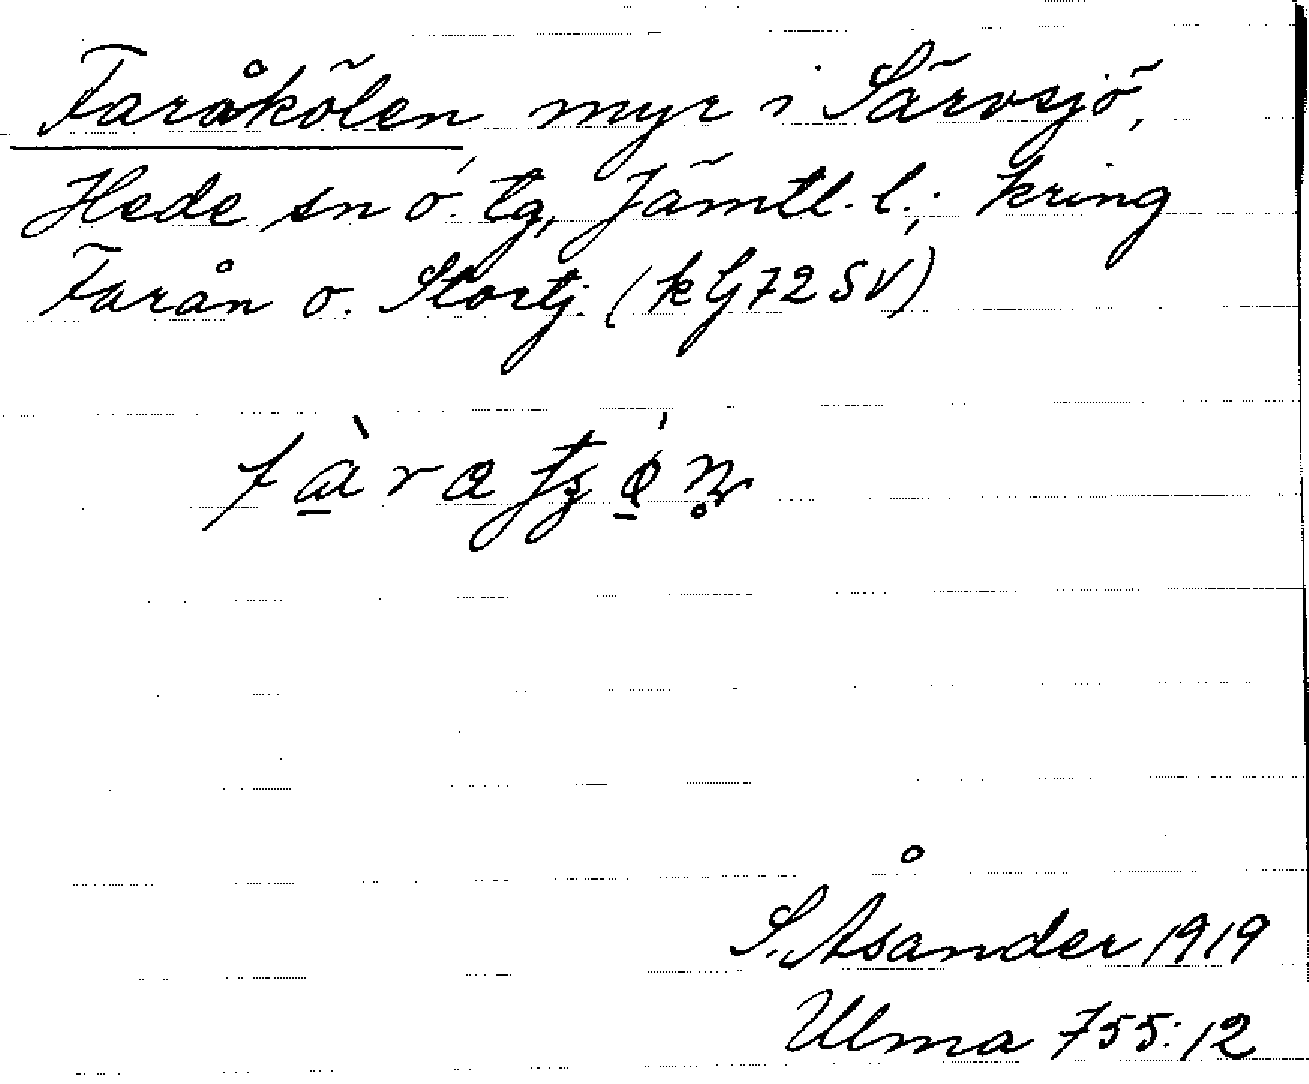 Faråkölen, myr i Särvsjö,
Hede sn o. tg, Jämtl. l.; kring
Farån o. Stortj. (kG72SV)
S. Åsander 1919
Ulma 755:12